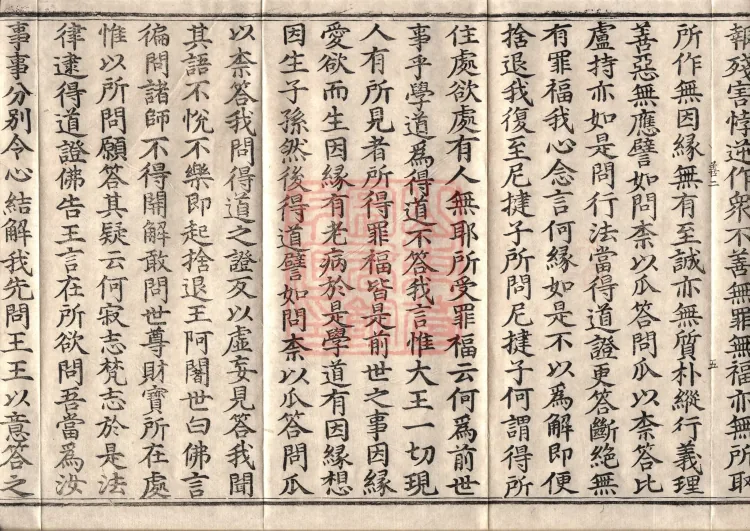 報殘害悖逆作衆不善無罪無福亦無所取
善二
五
所作無因緣無有至誠亦無質朴縱行義理
善惡無應譬如問柰以瓜答問瓜以柰答比
盧持亦如是問行法當得道證更答斷絕無
有罪福我心念言何緣如是不以爲解即便
捨退我復至尼揵子所問尼揵子何謂得所
住處欲處有人無耶所受罪福云何爲前世
事乎學道爲得道不答我言惟大王一切現
人有所見者所得罪福皆是前世之事因緣
愛欲而生因緣有老病於是學道有因緣想
因生子孫然後得道譬如問柰以瓜答問瓜
以柰答我問得道之證反以虛妄見答我聞
其語不悅不樂即起捨退王阿闍世白佛言
徧問諸師不得開解敢問世尊財寶所在處
惟以所問願答其疑云何寂志梵志於是法
律逮得道證佛告王言在所欲問吾當爲汝
事事分別令心結解我先問王王以意答之